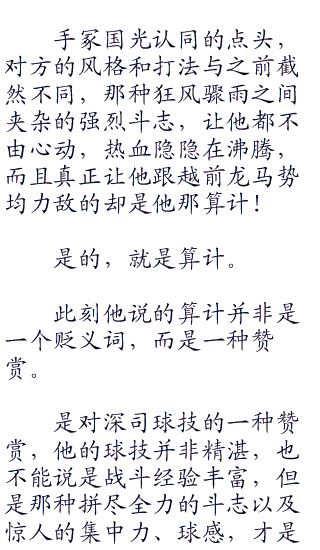 手冢国光认同的点头，
对方的风格和打法与之前截
然不同，那种狂风骤雨之间
夹杂的强烈斗志，让他都不
由心动，热血隐隐在沸腾，
而且真正让他跟越前龙马势
均力敌的却是他那算计！
是的，就是算计。
此刻他说的算计并非是
一个贬义词，而是一种赞
赏。
是对深司球技的一种赞
赏，他的球技并非精湛，也
不能说是战斗经验丰富，但
是那种拼尽全力的斗志以及
惊人的集中力、球感，才是